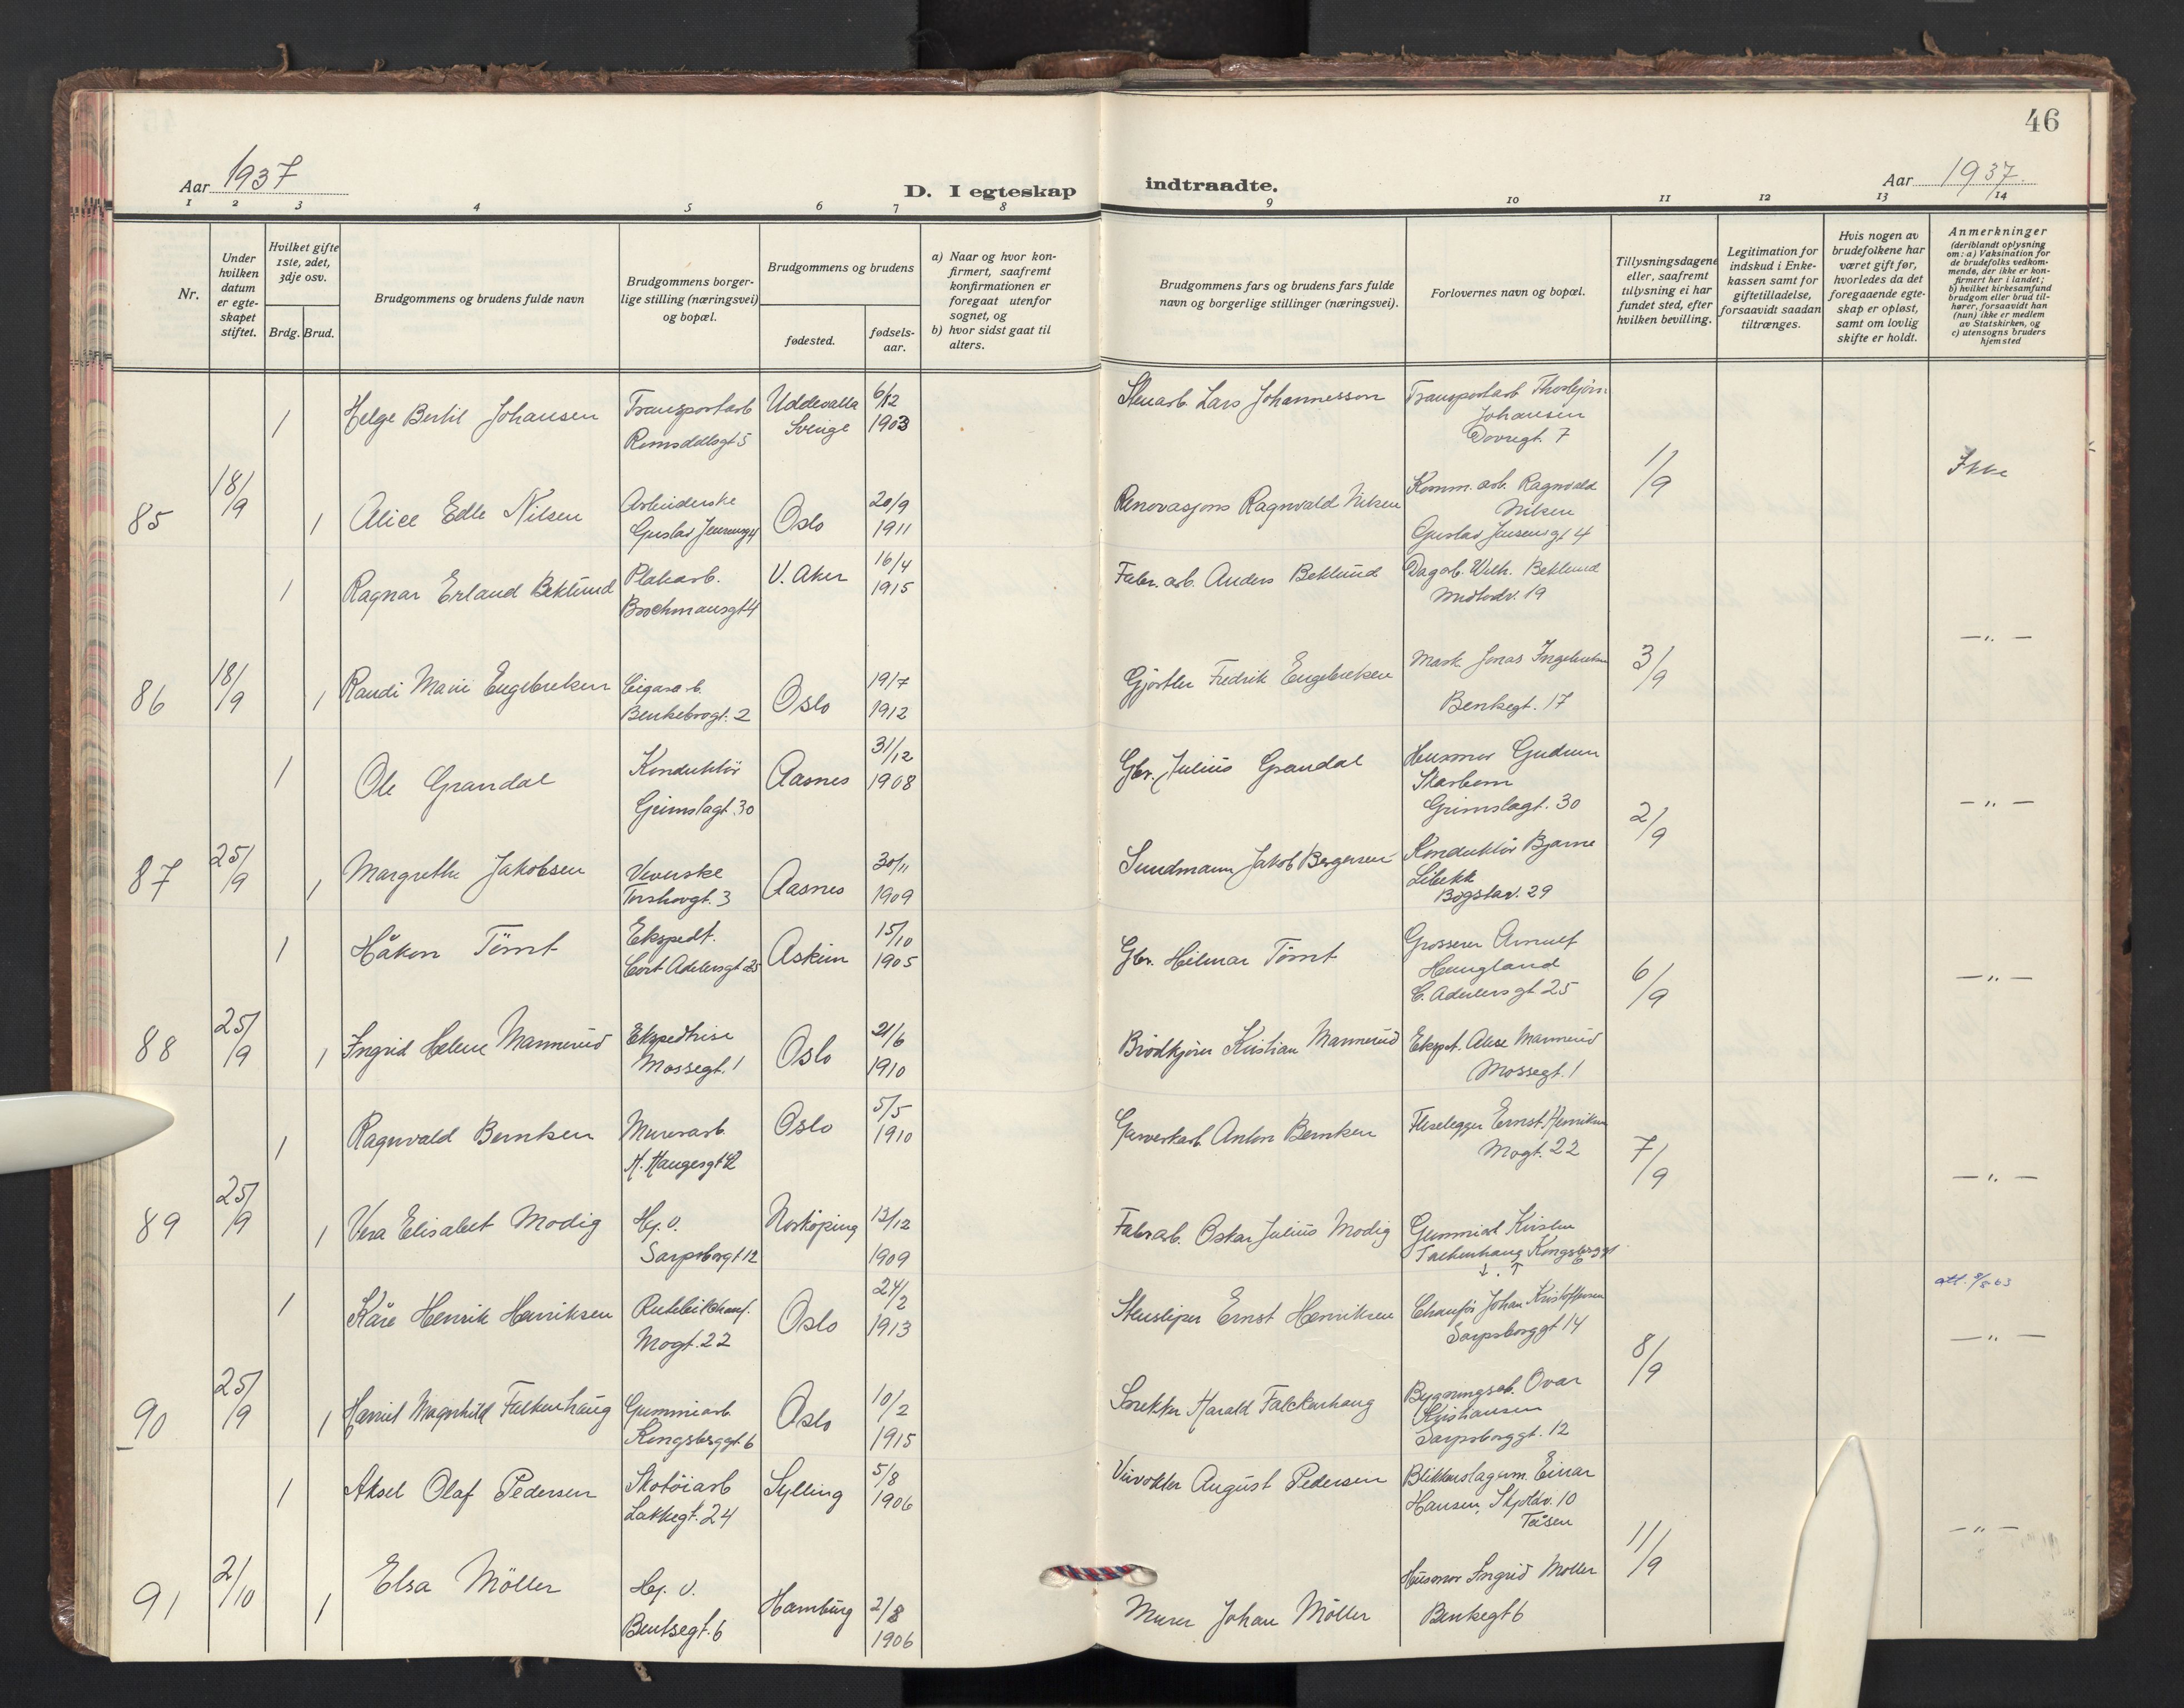 46
Aar 1937
D. I egteskap indtraadte.
Aar 1937.
1 2 3 4 5 6 7 8 9 10 11 12 13 14
Nr.
Under hvilken datum er egte-skapet stiftet.
Hvilket gifte 1ste, 2det, 3dje osv.
Brdg. Brud.
Brudgommens og brudens fulde navn
Brudgommens borger-lige stilling (næringsvei) og bopæl.
Brudgommens og brudens
fødested.
fødsels-aar.
a) Naar og hvor kon-firmert, saafremt konfirmationen er foregaat utenfor sognet, og
b) hvor sidst gaat til alters.
Brudgommens fars og brudens fars fulde navn og borgerlige stillinger (næringsvei).
Forlovernes navn og bopæl.
Tillysningsdagene eller, saafremt tillysning ei har fundet sted, efter hvilken bevilling.
Legitimation for indskud i Enke-kassen samt for giftetilladelse, forsaavidt saadan tiltrænges.
Hvis nogen av brudefolkene har været gift før, hvorledes da det foregaaende egte-skap er opløst, samt om lovlig skifte er holdt.
Anmerkninger
(deriblandt oplysning om: a) Vaksination for de brudefolks vedkom-mende, der ikke er kon-firmert her i landet; b) hvilket kirkesamfund brudgom eller brud til-hører, forsaavidt han (hun) ikke er medlem av Statskirken, og c) utensogns bruders hjemsted
1 Helge Bertil Johansen Transportarb Romsdalsgt 5 Uddevalla Sverige 6/12 1903 Stenarb. Lars Johannesson Transportarb Thorbjørn Johansen Dovregt. 7
85 18/9 1 Alice Edle Nilsen Arbeiderske Gustav Jensensgt 4 Oslo 20/9 1911 Renovasjons Ragnvald Nilsen Komm. arb. Ragnvald Nilsen Gustav Jensensgt 4 1/9 Ikke
1 Ragnar Erland Beklund Platearb. Brochmansgt 4 V. Aker 16/4 1915 Fabr. arb. Anders Beklund Dagarb. Wilh. Beklund 19
86 18/9 1 Randi Marie Engebretsen Cigararb. Benkebrogt. 2 Oslo 19/7 1912 Gjørtler Fredrik Engebretsen Mask Jonas Ingebretsen Benkegt. 17 3/9 — „ —
1 Ole Grandal Konduktör Grimslagt. 30 Aasnes 31/12 1908 Gbr. Julius Grandal Husmor Gudrun Skarbom Grimslagt. 30
87 25/9 1 Margrethe Jakobsen Veverske Torshovgt. 3 Aasnes 30/11 1909 Sundmann Jakob Bergersen Konduktör Bjarne Libekk Bogstav. 29 2/9 — „ —
1 Håkon Tömt Ekspedt. Cort Adelersgt 25 Askim 15/10 1905 Gbr. Hilmar Tömt Grosserer Arnulf Haugland C. Adelersgt 25
88 25/9 1 Ingrid Helene Mannerud Ekspedtrise Mossegt. 1 Oslo 21/6 1910 Brödkjører Kristian Mannerud Ekspet. Aase Mannerud Mossegt. 1 6/9 — „ —
1 Ragnvald Berntsen Murerarb. H. Haugesgt 42 Oslo 5/5 1910 Garverarb. Anton Berntsen Fliselegger Ernst Henriksen Mogt. 22
89 25/9 1 Vera Elisabet Modig Hj. v. Sarpsborggt 12 Norköping 13/12 1909 Fabrarb. Oskar Julius Modig Gummiarb Kirsten Falkenhaug Kongsberggt 6 7/9 — „ —
1 Kåre Henrik Henriksen Rutebilchauf. Mogt. 22 Oslo 24/2 1913 Stensliper Ernst Henriksen Chaufför Johan Kristoffersen Sarpsborggt 14
90 25/9 1 Harriet Magnhild Falkenhaug Gummiarb. Kongsberggt. 6 Oslo 10/2 1915 Snekker Harald Falckenhaug Bygningsarb. Ovar Kristiansen Sarpsborggt. 12 8/9 — „ —
1 Aksel Olaf Pedersen Skotöiarb Lakkegt. 24 Sylling 5/8 1906 August Pedersen Blikkenslagerm. Einar Hansen, Skjoldv. 10 Tåsen
91 2/10 1 Elsa Möller Hj. v. Bentsegt. 6 Hamburg 2/8 1906 Murer Johan Möller Husmor Ingrid Moller Benkegt 6 11/9 — „ —